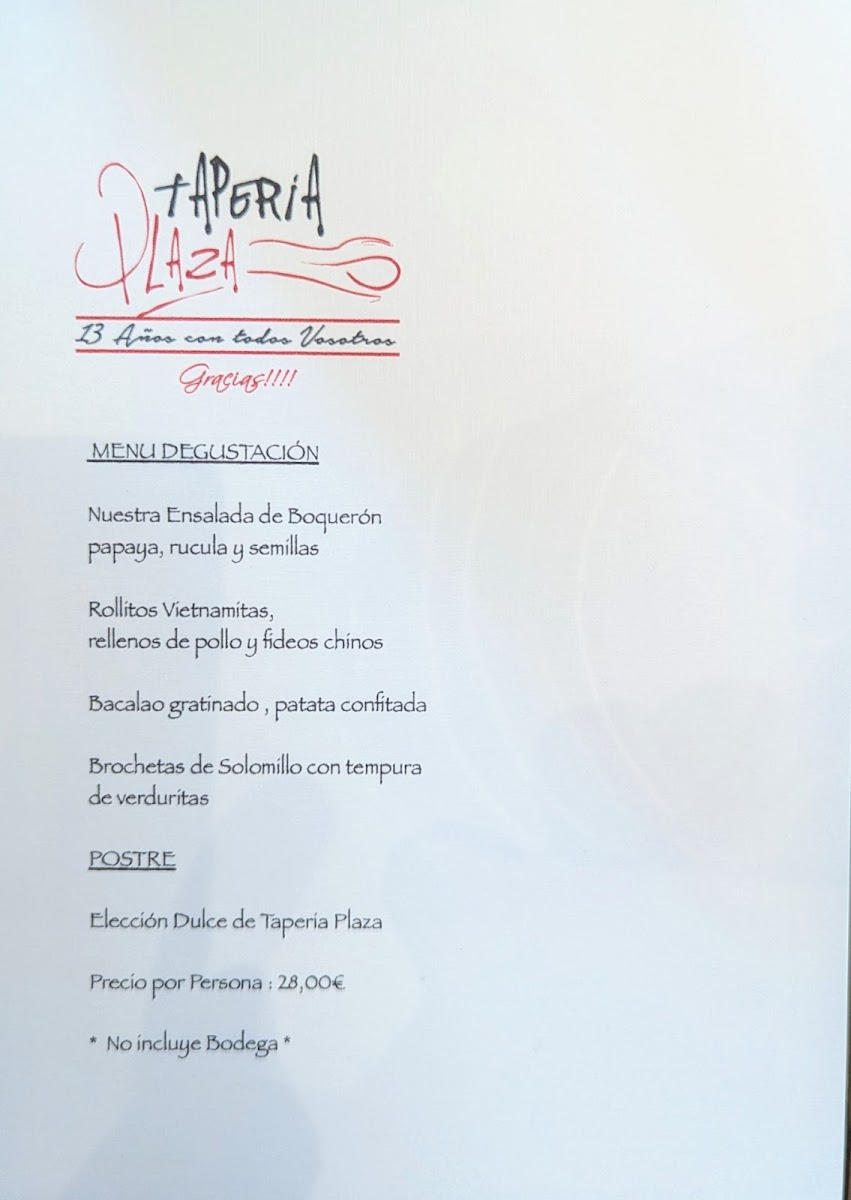 TAPERIA
PLAZA
13 Años con todos Vosotros
Gracias!!!!
MENU DEGUSTACIÓN
Nuestra Ensalada de Boquerón
papaya, rucula y semillas
Rollitos Vietnamitas,
rellenos de pollo y fideos chinos
Bacalao gratinado , patata confitada
Brochetas de Solomillo con tempura
de verduritas
POSTRE
Elección Dulce de Taperia Plaza
Precio por Persona : 28,00€
* No incluye Bodega *